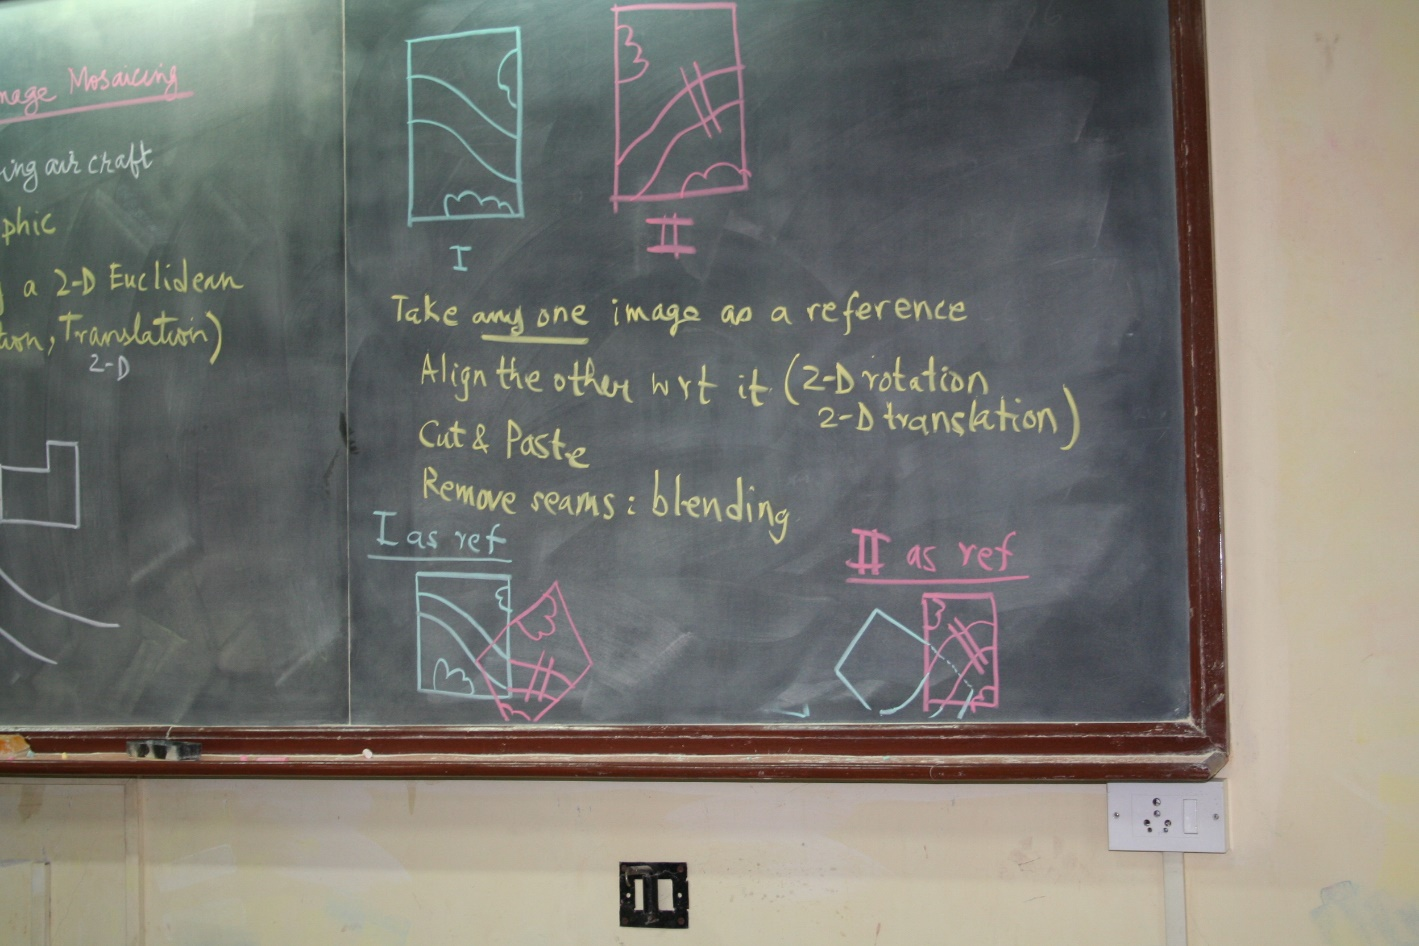 Mosaicing
air craft
phic
a 2-D Euclidean
, Translation)
2-D
I
II
Take any one image as a reference
Align the other wrt it (2-D rotation
2-D translation)
Cut & Paste
Remove seams : blending
I as ref
II as ref